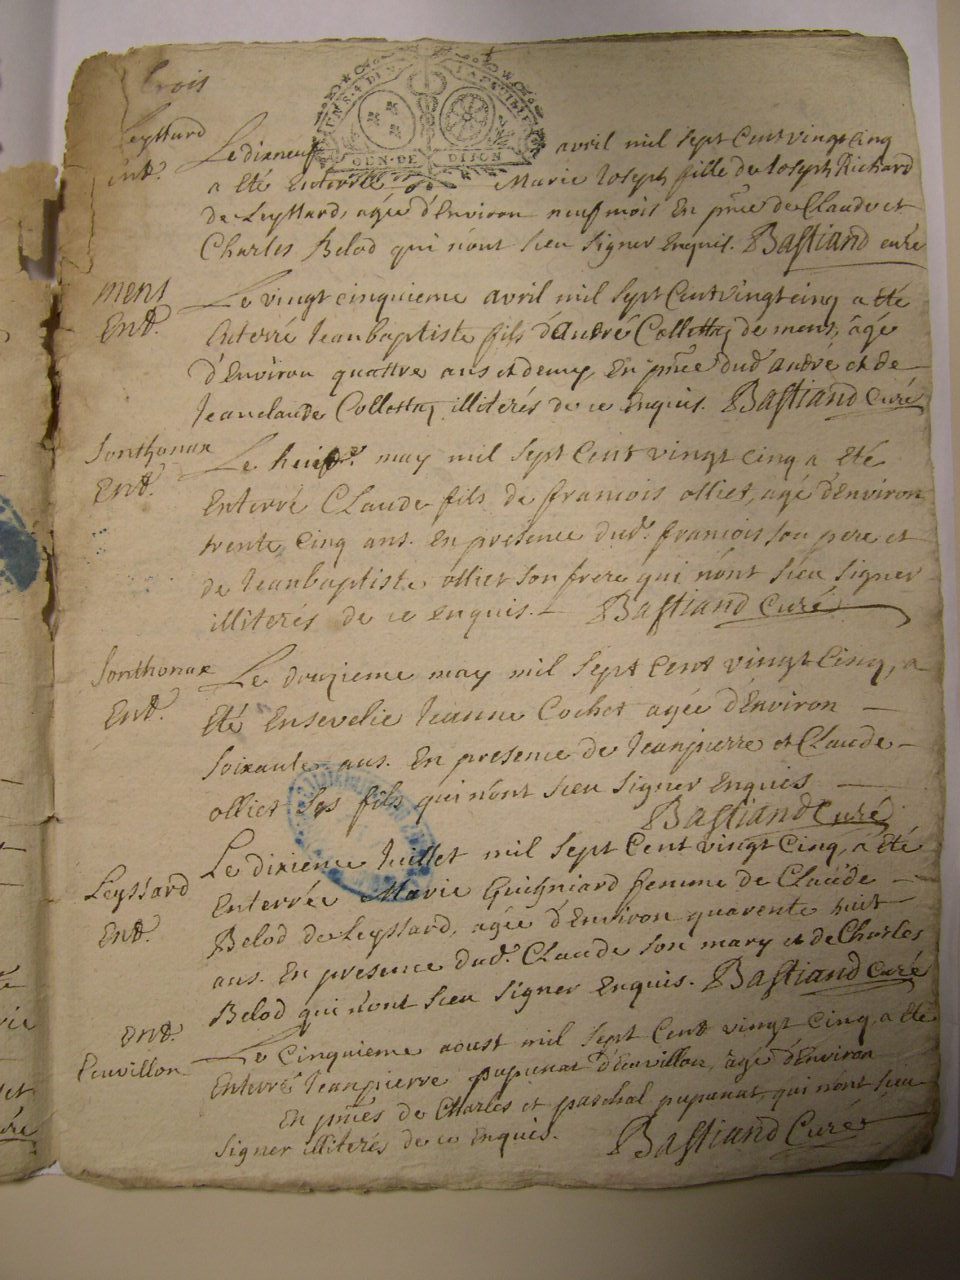 trois
GEN·DE DIJON
Leyssard
Ent.
Le dixneuf avril mil sept Cent vingt cinq
a eté Enterrée Marie Joseph fille de Joseph Richard
de Leyssard, agée d'Environ neuf mois En pnce de Claude et
Charles Belod qui n'ont sceu signer Enquis. Bastiand curé
ment
Ent.
Le vingt cinquieme avril mil sept Cent vingt cinq a eté
Enterré Jeanbaptiste fils d'André Colletta, de ment, âgé
d'Environ quattre ans et demy, En pnce dud. andre et de
Jeanclaude Colletta, illiterés de ce Enquis. Bastiand Curé
Sonthonax
Ent.
Le may mil sept Cent vingt cinq a eté
Enterré Claude fils de francois ollier, agé d'Environ
trente cinq ans. En presence dud. francois son pere et
de Jeanbaptiste ollier son frere qui n'ont sceu signer
illiterés de ce enquis. Bastiand Curé
Sonthonax
Ent.
Le douzieme may mil sept cent vingt Cinq, a
eté Ensevelie Jeanne Cochet agée d'Environ
soixante ans. En presence de Jeanpierre et Claude
ollier ses fils qui n'ont sceu signer Enquis
Bastiand Curé
Leyssard
Ent.
Le dixieme Juillet mil sept Cent vingt Cinq, a eté
Enterrée Marie Guigniard femme de Claude
Belod de Leyssard, agée d'Environ quarente huit
ans. En presence dud. Claude son mary et de Charles
Belod qui n'ont sceu signer Enquis. Bastiand Curé
Ent.
Peuvillon
Le Cinquieme aoust mil sept Cent vingt cinq a eté
Enterré Jeanpierre pupunat d'Envillon, âgé d'Environ
En pnces de Charles et paschal pupunat, qui n'ont sceu
signer illiterés de ce Enquis. Bastiand Curé